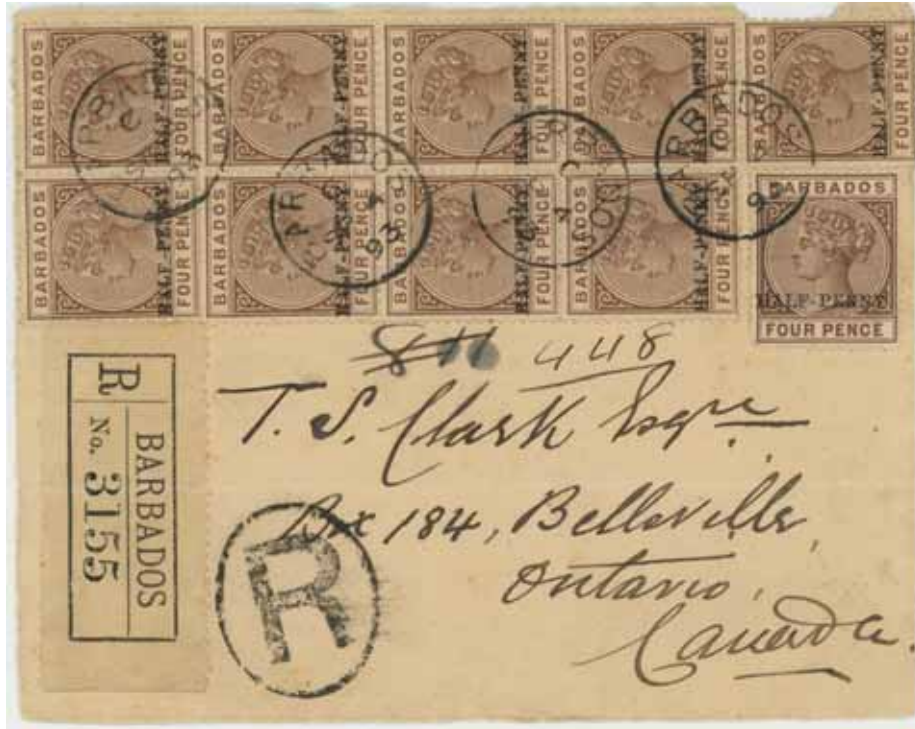 BARBADOS HALF-PENNY FOUR PENCE
BARBADOS HALF-PENNY FOUR PENCE
BARBADOS HALF-PENNY FOUR PENCE
BARBADOS HALF-PENNY FOUR PENCE
BARBADOS HALF-PENNY FOUR PENCE
BARBADOS HALF-PENNY FOUR PENCE
BARBADOS HALF-PENNY FOUR PENCE
BARBADOS HALF-PENNY FOUR PENCE
BARBADOS HALF-PENNY FOUR PENCE
BARBADOS
HALF-PENNY
FOUR PENCE
448
T. S. Clark Esqre
Box 184, Belleville
Ontario,
Canada.
R
BARBADOS
R
No. 3155